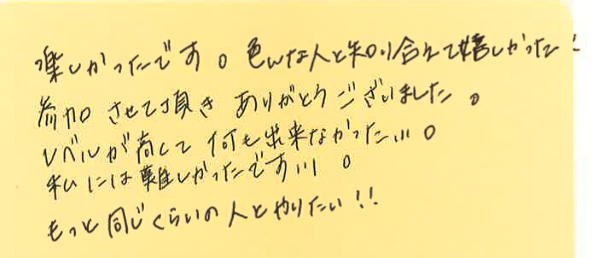 楽しかったです。色んな人と知り合えて嬉しかった!
参加させて頂きありがとうございました。
レベルが高くて何も出来なかった...。
私には難しかったです...。
もっと同じくらいの人とやりたい!!